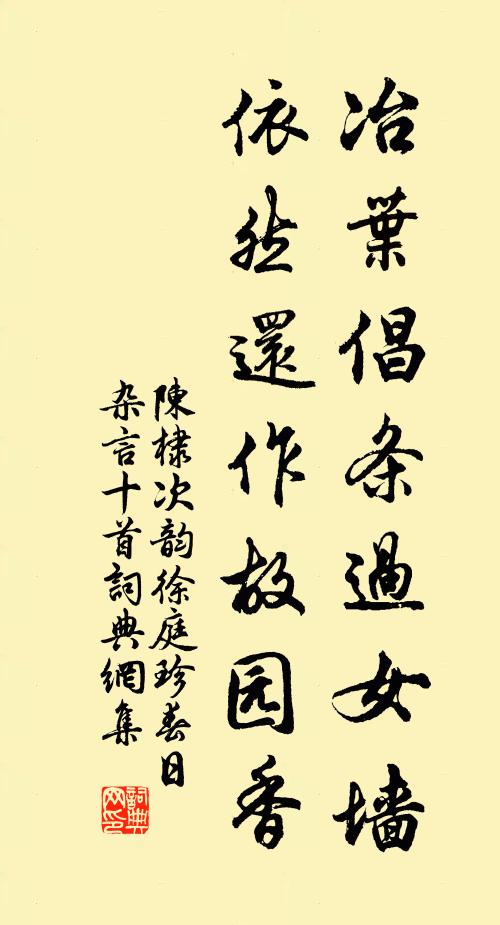 冶葉倡条過女墻
依然還作故园香
陳棣次韵徐庭珍春日
杂言十首詞典網集
詞典网印